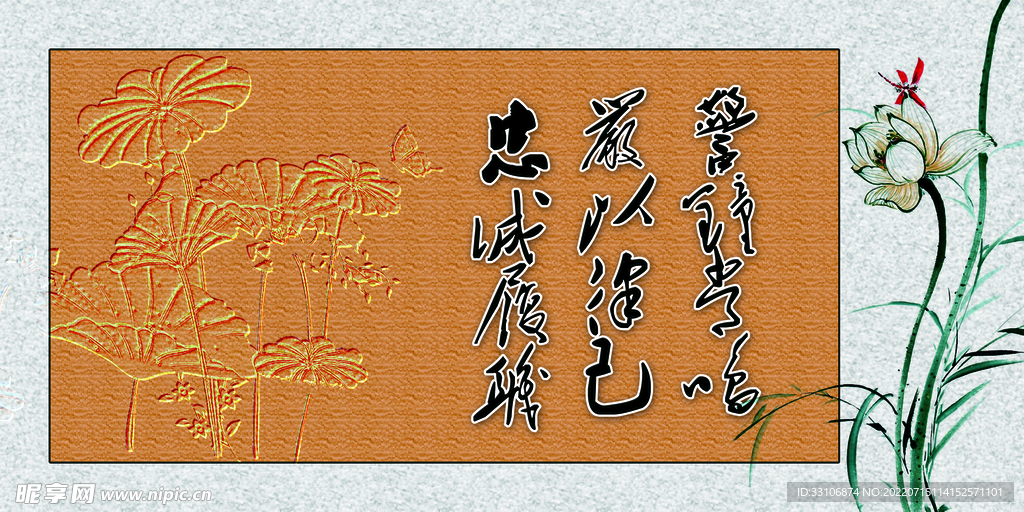 警鐘常鳴
嚴以律己
忠诚履職
昵享网 www.nipic.cn
ID:33106874 NO.20220715114152571101